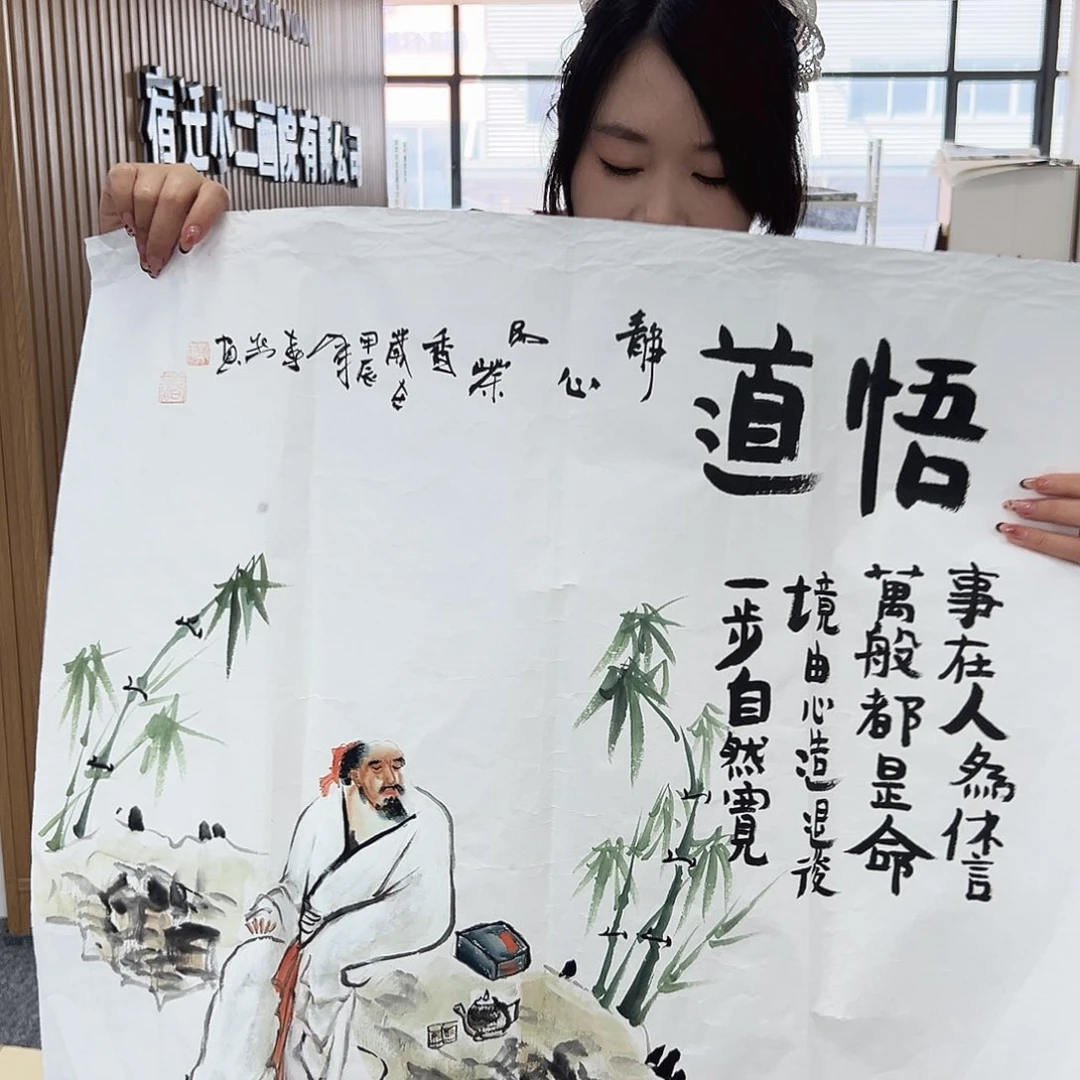 宿迁小二画院有限公司
悟道
事在人為休言
萬般都是命
境由心造退後
一步自然寬
靜心
香
歲在
甲辰
年